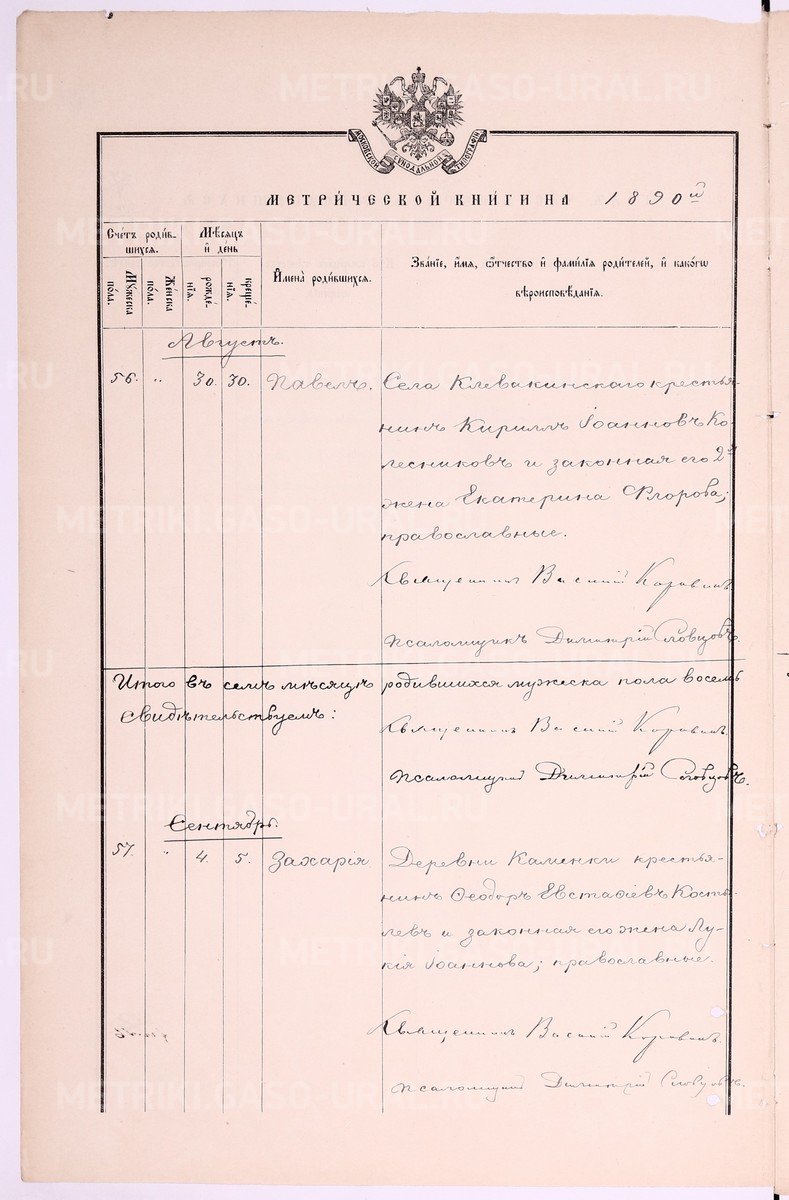 МОСКОВСКОЙ СѴНОДАЛЬНОЙ ТИПОГРАФІИ
МЕТРИ́ЧЕСКОЙ КНИ́ГИ НА 1890й
Сче́тъ роди́в-
шихся.
Мꙋ́жеска
по́ла.
Же́нска
по́ла.
Мѣ́сяцъ
и҆ де́нь
рожде́-
нїѧ.
креще́-
нїѧ.
И҆мена̀ роди́вшихся.
Зва́нїе, и҆́мѧ, ѻ҆́тчество и҆ фами́лїѧ роди́телей, и҆ како́гѡ
вѣроисповѣ́данїѧ.
Августъ.
56. „ 30. 30. Павелъ. Села Клевакинскаго крестья-
нинъ Кириллъ Іоанновъ Ко-
лесниковъ и законная его 2я
жена Екатерина Ѳ҆горова;
православные.
Священникъ Василій
Псаломщикъ Димитрій Словцовъ.
Итого въ семъ мѣсяцѣ родившихся мужеска пола восемь
Свидѣтельствуемъ:
Священникъ Василій
Псаломщикъ Димитрій Словцовъ.
Сентябрь.
57. „ 4. 5. Захарія Деревни Каменки крестья-
нинъ Ѳеодоръ Евстаѳіевъ Косты-
левъ и законная его жена Лу-
кія Іоаннова; православные.
Священникъ Василій
Псаломщикъ Димитрій Словцовъ.
METRIKI.GASO-URAL.RU